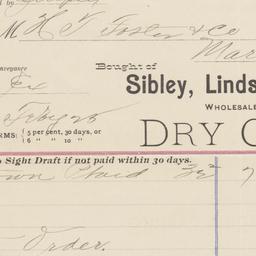 M H. T. Foster & Co
Mar
Bought of
Sibley, Linds
WHOLESALE
DRY G
TERMS: 5 per cent, 30 days, or
6 " " 10 "
Sight Draft if not paid within 30 days.
Plaid 32 7
Order.